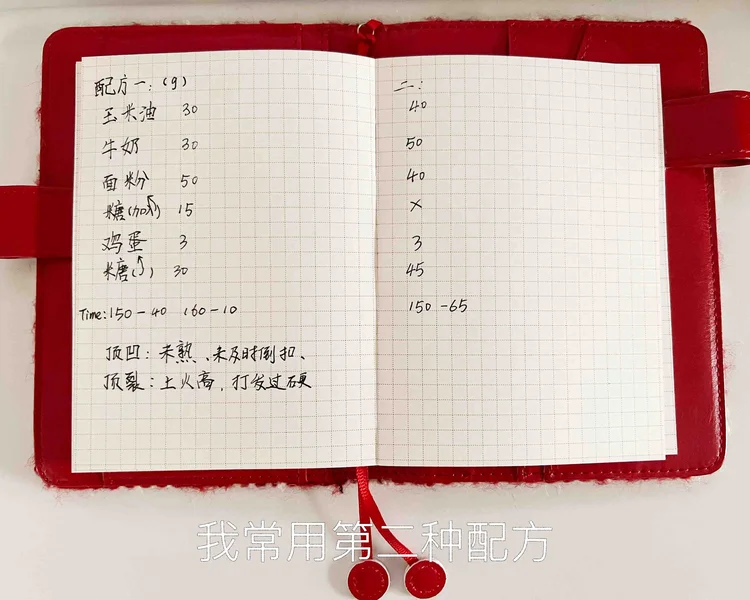 配方一：(g)
玉米油 30
牛奶 30
面粉 50
糖(加入↖) 15
鸡蛋 3
糖(↑) 30
Time: 150-40 160-10
顶凹：未熟、未及时倒扣、
顶裂：上火高，打发过硬
二：
40
50
40
×
3
45
150-65
我常用第二种配方